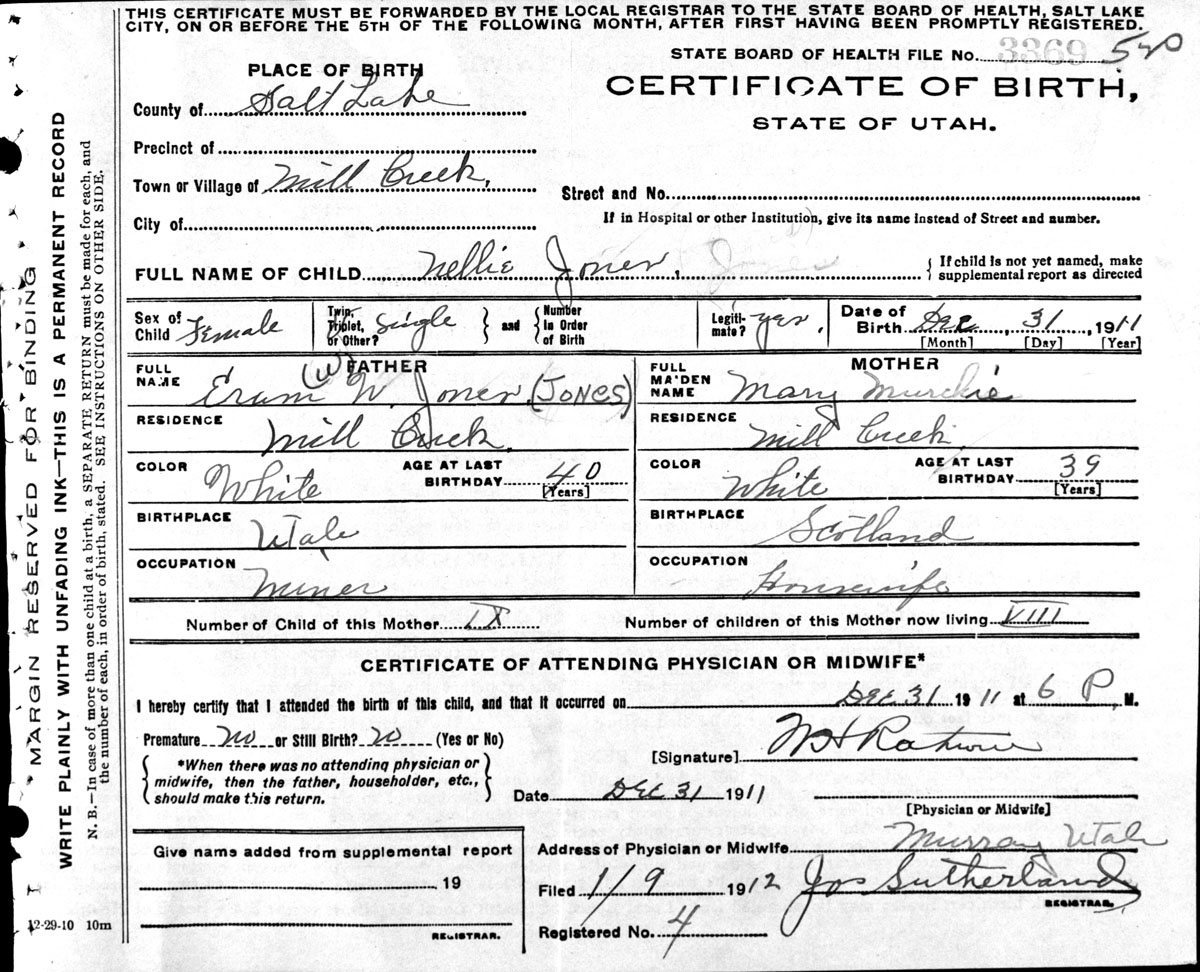 THIS CERTIFICATE MUST BE FORWARDED BY THE LOCAL REGISTRAR TO THE STATE BOARD OF HEALTH, SALT LAKE
CITY, ON OR BEFORE THE 5TH OF THE FOLLOWING MONTH, AFTER FIRST HAVING BEEN PROMPTLY REGISTERED.
STATE BOARD OF HEALTH FILE No. 3369
PLACE OF BIRTH
CERTIFICATE OF BIRTH,
County of Salt Lake
STATE OF UTAH.
Precinct of
Town or Village of Mill Creek,
Street and No.
City of
If in Hospital or other Institution, give its name instead of Street and number.
FULL NAME OF CHILD Nellie Jones, Jones
If child is not yet named, make
supplemental report as directed
Sex of Child Female
Twin, Triplet, or Other? Single
and
Number in Order of Birth
Legiti-mate? yes.
Date of Birth Dec, 31, 1911
[Month] [Day] [Year]
FATHER
FULL NAME W. Jones (JONES)
RESIDENCE Mill Creek.
COLOR White
AGE AT LAST BIRTHDAY 40
[Years]
BIRTHPLACE Utah
OCCUPATION Miner
MOTHER
FULL MAIDEN NAME Mary Murchie
RESIDENCE Mill Creek.
COLOR White
AGE AT LAST BIRTHDAY 39
[Years]
BIRTHPLACE Scotland
OCCUPATION Housewife
Number of Child of this Mother IX
Number of children of this Mother now living VIII
CERTIFICATE OF ATTENDING PHYSICIAN OR MIDWIFE*
I hereby certify that I attended the birth of this child, and that it occurred on Dec 31 1911 at 6 P. M.
Premature no or Still Birth? no (Yes or No)
[Signature]
*When there was no attending physician or
midwife, then the father, householder, etc.,
should make this return.
Date Dec 31 1911
[Physician or Midwife]
Address of Physician or Midwife Murray Utah
Give name added from supplemental report
19
REGISTRAR.
Filed 1/9 1912 Jos Sutherland
REGISTRAR.
Registered No. 4
12-29-10 10m
MARGIN RESERVED FOR BINDING
WRITE PLAINLY WITH UNFADING INK—THIS IS A PERMANENT RECORD
N. B.—In case of more than one child at a birth, a SEPARATE RETURN must be made for each, and
the number of each, in order of birth, stated. SEE INSTRUCTIONS ON OTHER SIDE.